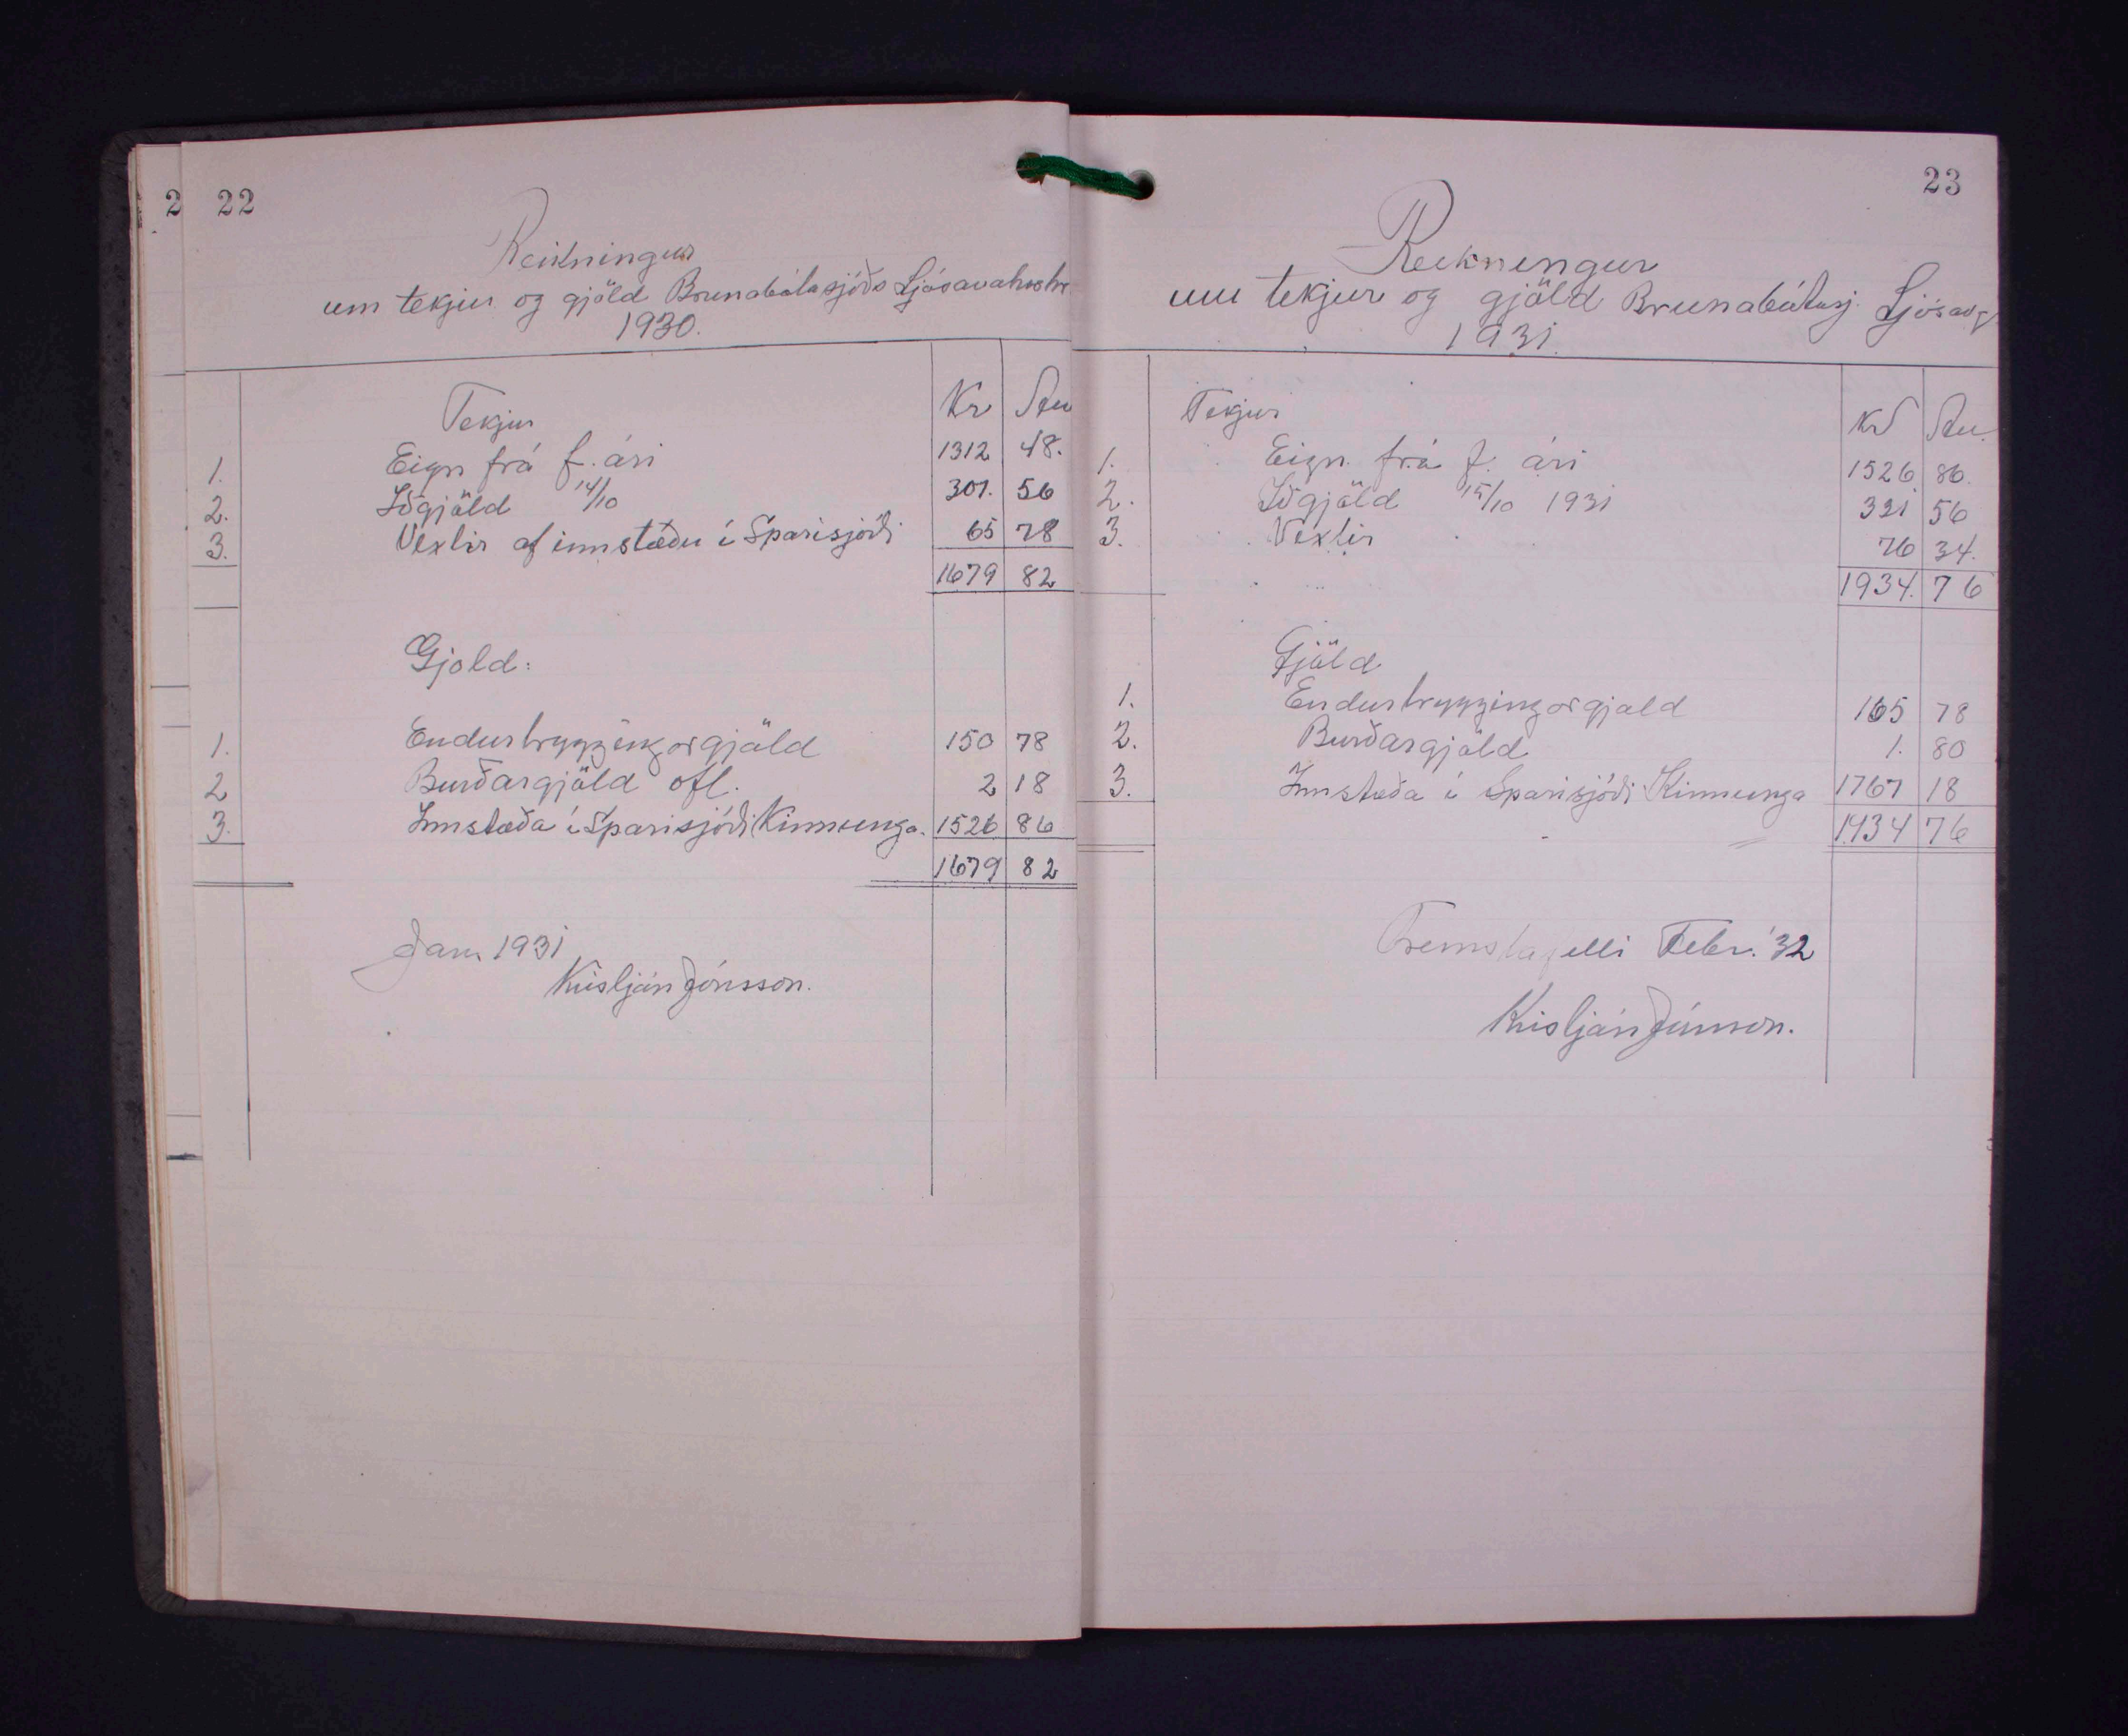 2 22
Reikningur
um tekjur og gjöld Brunabótasjóðs Ljósavatnshr
1930.
Tekjur Kr Au
1. Eign frá f. ári 1312 48.
2. Iðgjöld 14/10 301. 56
3. Vextir af innstæðu í Sparisjóði 65 78
1679 82
Gjöld:
1. Endurtryggingargjöld 150 78
2 Burðargjöld ofl. 2 18
3. Innstæða í Sparisjóði Kinnunga. 1526 86
1679 82
Jan. 1931
Kristján Jónsson.
23
Reikningur
um tekjur og gjöld Brunabótasj. Ljósav
1931.
Tekjur Kr Au.
1. Eign frá f. ári 1526 86.
2. Iðgjöld 15/10 1931 331 56
3. Vextir 76 34.
1934. 76
Gjöld
1. Endurtryggingargjald 165 78
2. Burðargjöld 1. 80
3. Innstæða í Sparisjóði Kinnunga 1767 18
1934 76
Fremstafelli Febr. '32
Kristján Jónsson.